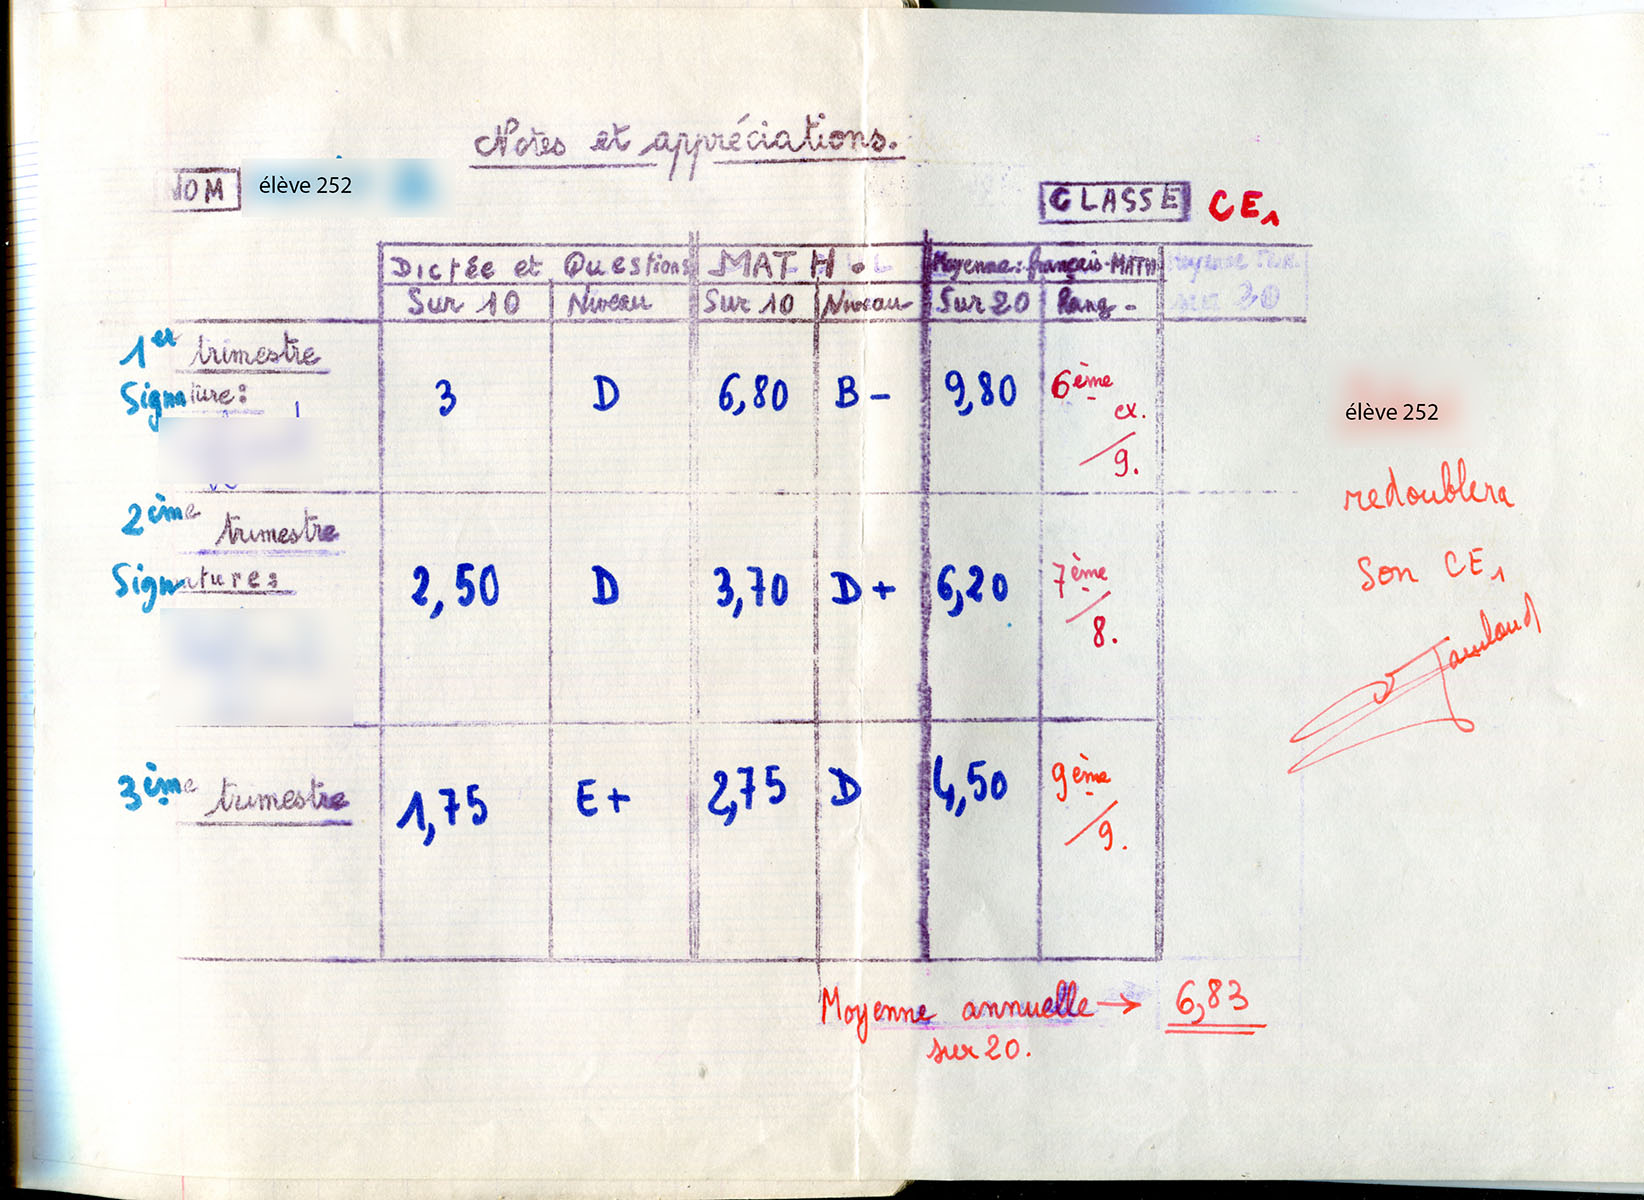 Notes et appréciations.
NOM élève 252
CLASSE CE1
Dictée et Questions MATH. Moyenne: français-MATH
Sur 10 Niveau Sur 10 Niveau Sur 20 Rang-
sur 20
1er trimestre
Signature:
3 D 6,80 B- 9,80 6ème
ex.
/9.
élève 252
redoublera
son CE1
2ème trimestre
Signatures
2,50 D 3,70 D+ 6,20 7ème
/8.
3ème trimestre
1,75 E+ 2,75 D 4,50 9ème
/9.
Moyenne annuelle → 6,83
sur 20.